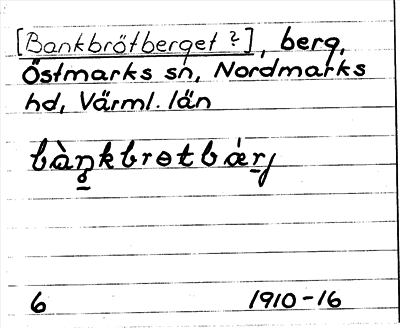 [Bankbrötberget ?], berg,
Östmarks sn, Nordmarks
hd, Värml. län
bàŋkbrɵtbǽrj
6 1910-16